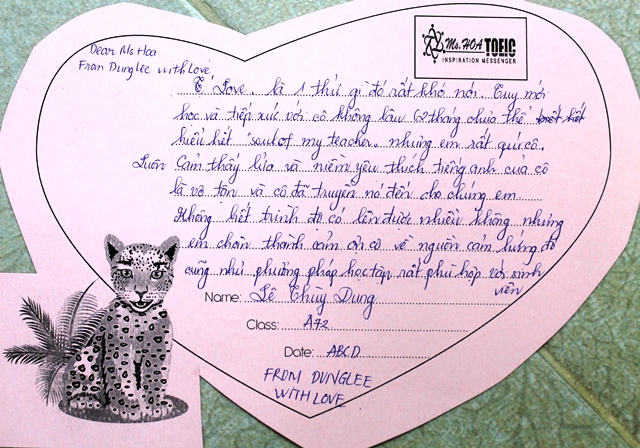 Dear Ms Hoa
From Dunglee with Love
Ms. HOA TOEIC
INSPIRATION MESSENGER
Love.. là 1 thứ gì đó rất khó nói. Tuy mới
học và tiếp xúc với cô không lâu (2 tháng chưa thể
hiểu hết "soul of my teacher.. nhưng em rất quí cô.
Luôn Cảm thấy lửa và niềm yêu thích tiếng anh của cô
là vô tận và cô đã truyền nó đến cho chúng em
Không biết trình độ có lên được nhiều không nhưng
em chân thành cảm ơn cô về nguồn cảm hứng đó
cũng như phương pháp học tập rất phù hợp với sinh
viên
Name: Lê Thùy Dung
Class: A72
Date: ABCD
FROM DUNGLEE
WITH LOVE